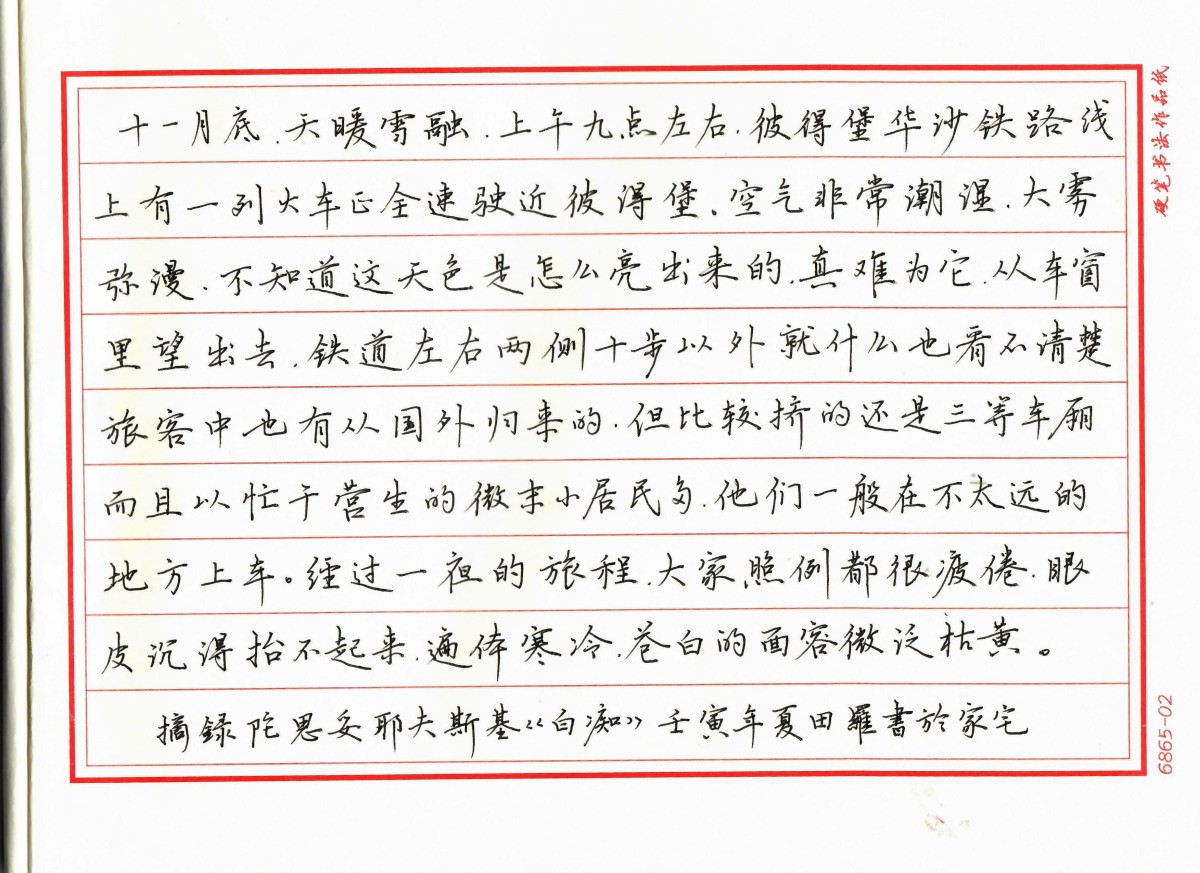 十一月底、天暖雪融、上午九点左右、彼得堡华沙铁路线
上有一列火车正全速驶近彼得堡、空气非常潮湿、大雾
弥漫、不知道这天色是怎么亮出来的、真难为它、从车窗
里望出去、铁道左右两侧十步以外就什么也看不清楚
旅客中也有从国外归来的、但比较挤的还是三等车厢
而且以忙于营生的微末小居民多、他们一般在不太远的
地方上车。经过一夜的旅程、大家照例都很疲倦、眼
皮沉得抬不起来、遍体寒冷、苍白的面容微泛枯黄。
摘録陀思妥耶夫斯基《白痴》壬寅年夏田羅書於家宅
硬笔书法作品纸
6865-02